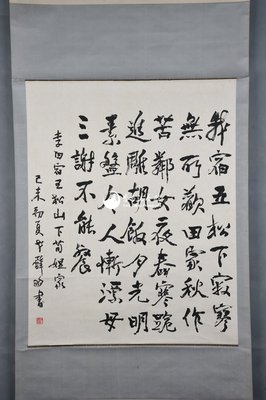 我宿五松下寂寥
無所歡田家秋作
苦鄰女夜舂寒跪
進雕胡飯月光明
素盤令人慚漂母
三謝不能餐
李白宿五松山下荀媪家
己未初夏書